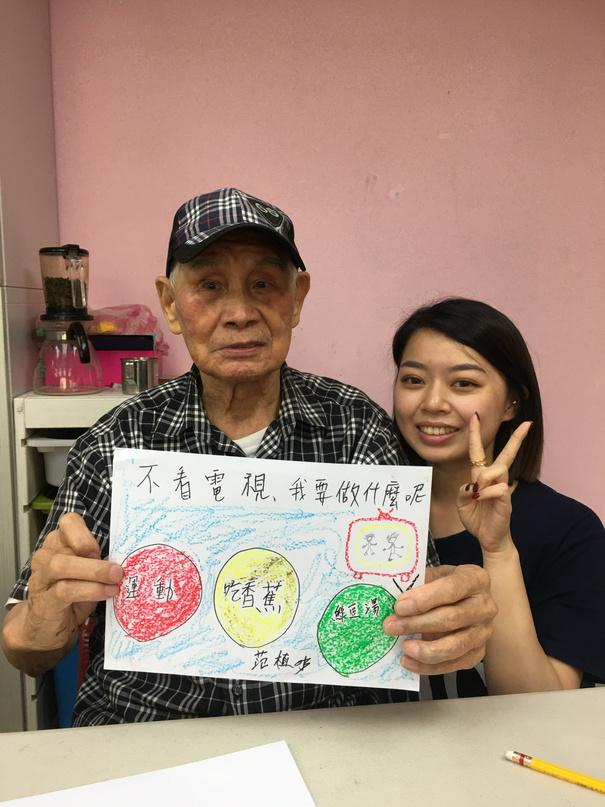 不看電視、我要做什麼呢
運動
吃香蕉
綠豆湯
范植